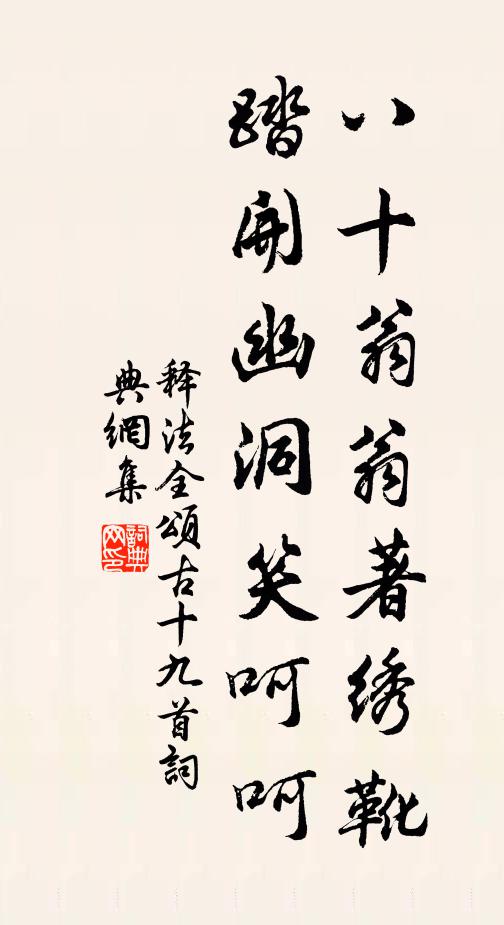 八十翁翁著绣靴
踏開幽洞笑呵呵
释法全頌古十九首詞
典網集
詞典网印